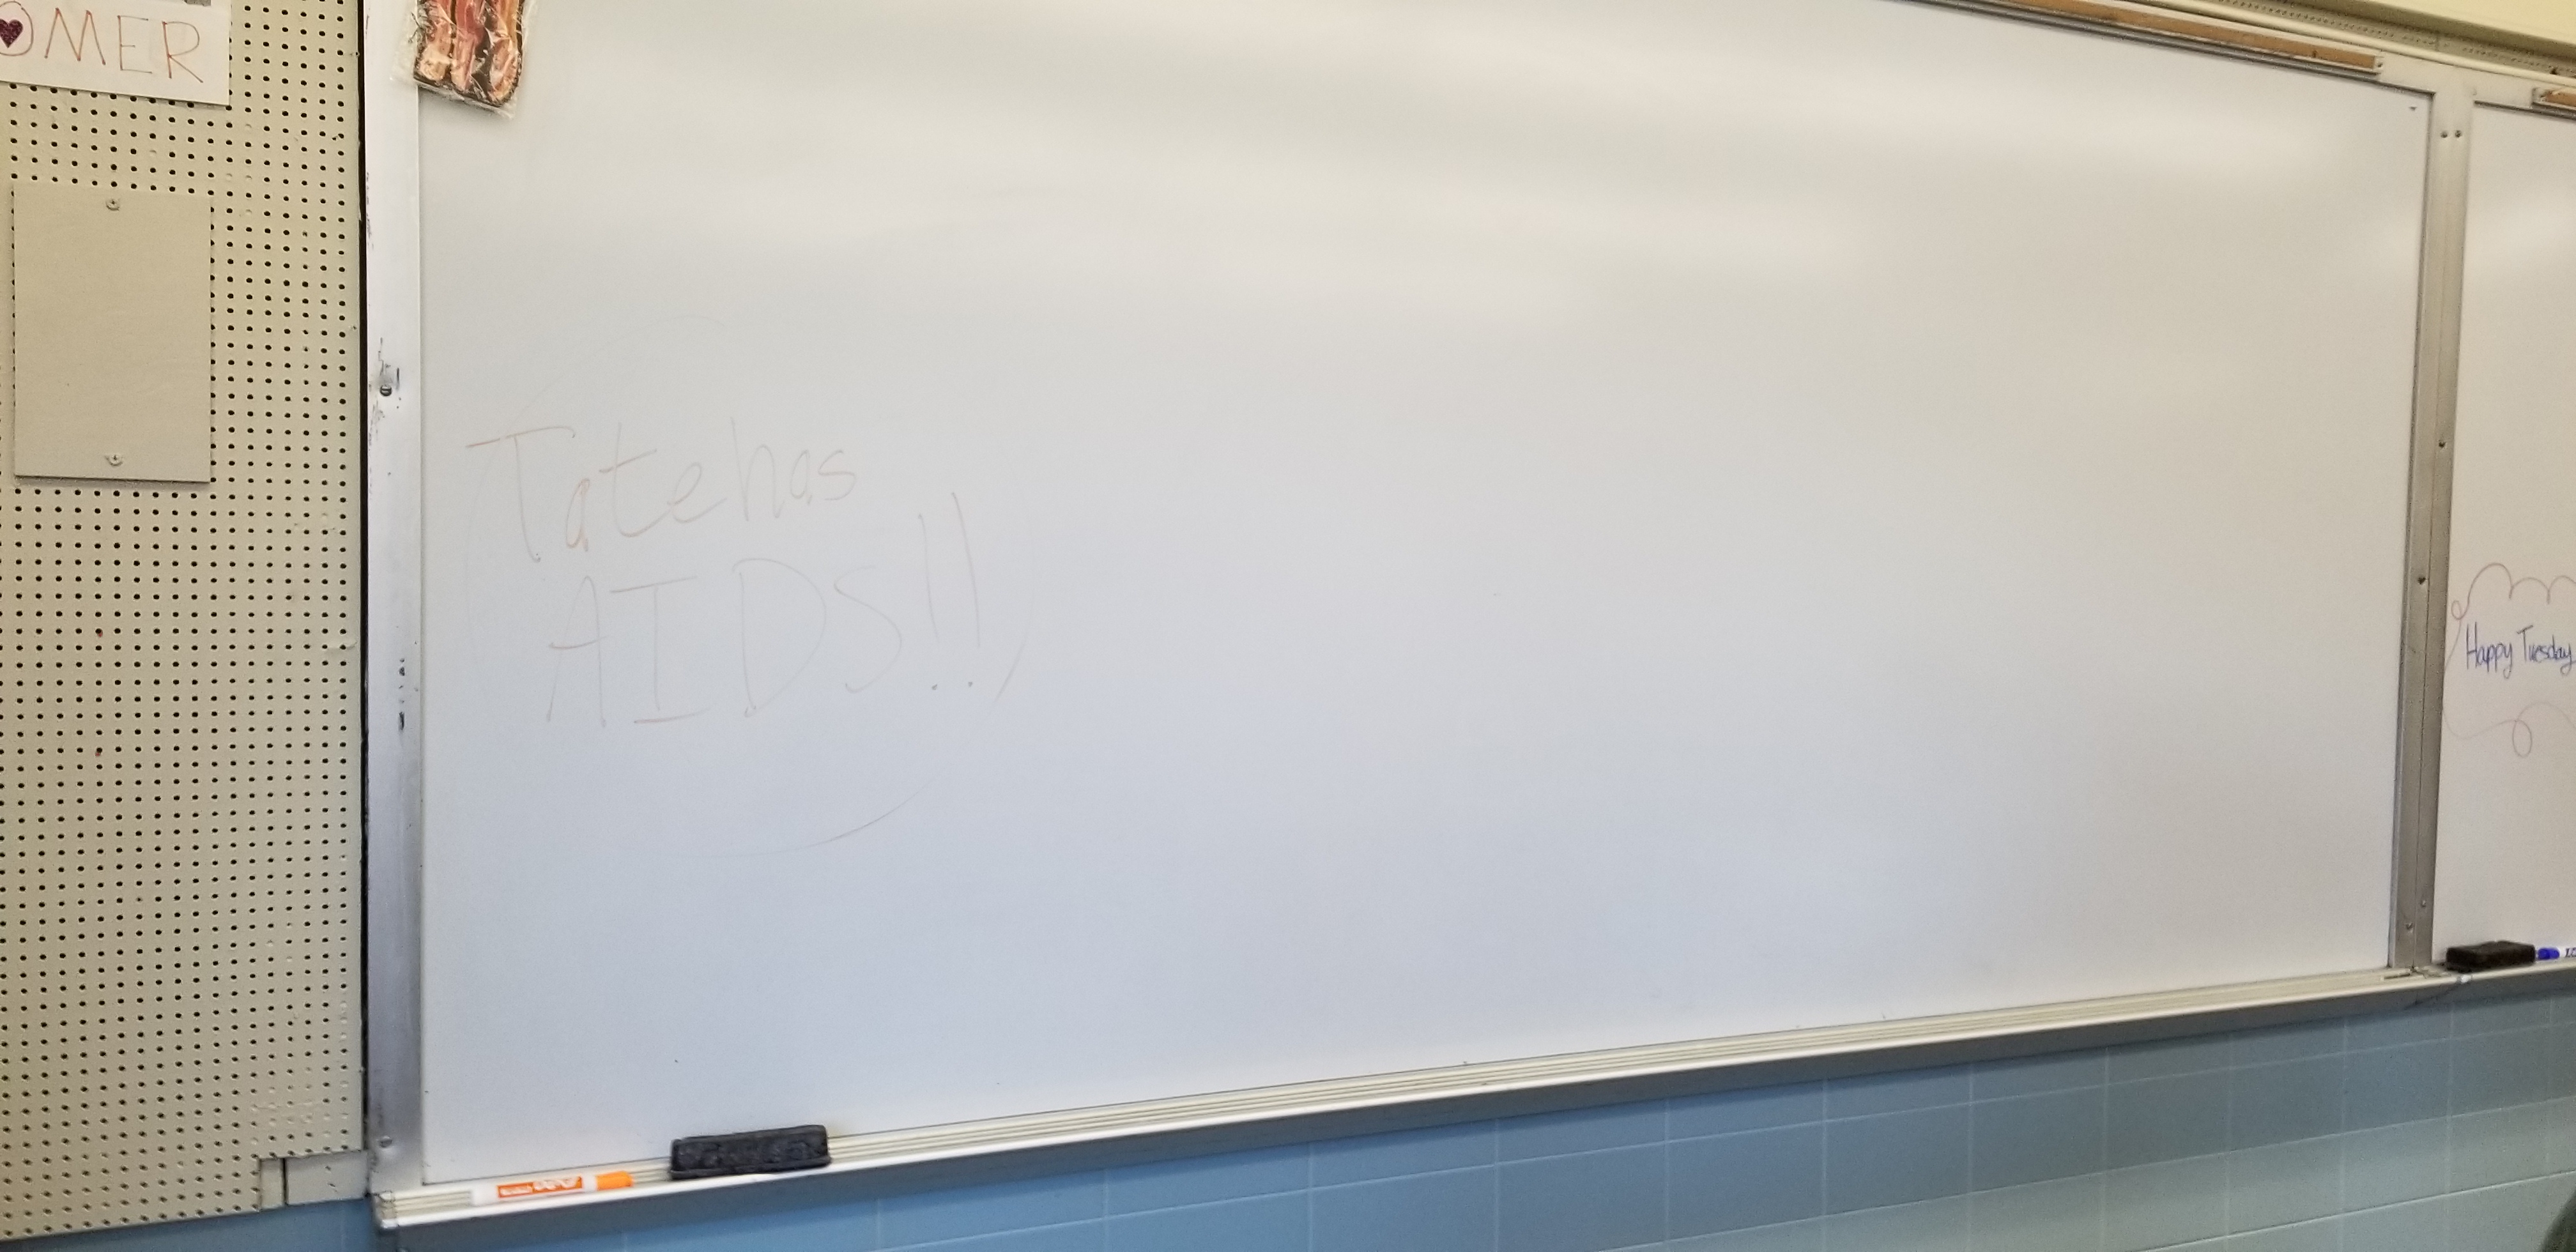 OMER
Tate has
AIDS!!
Happy Tuesday
EXPO